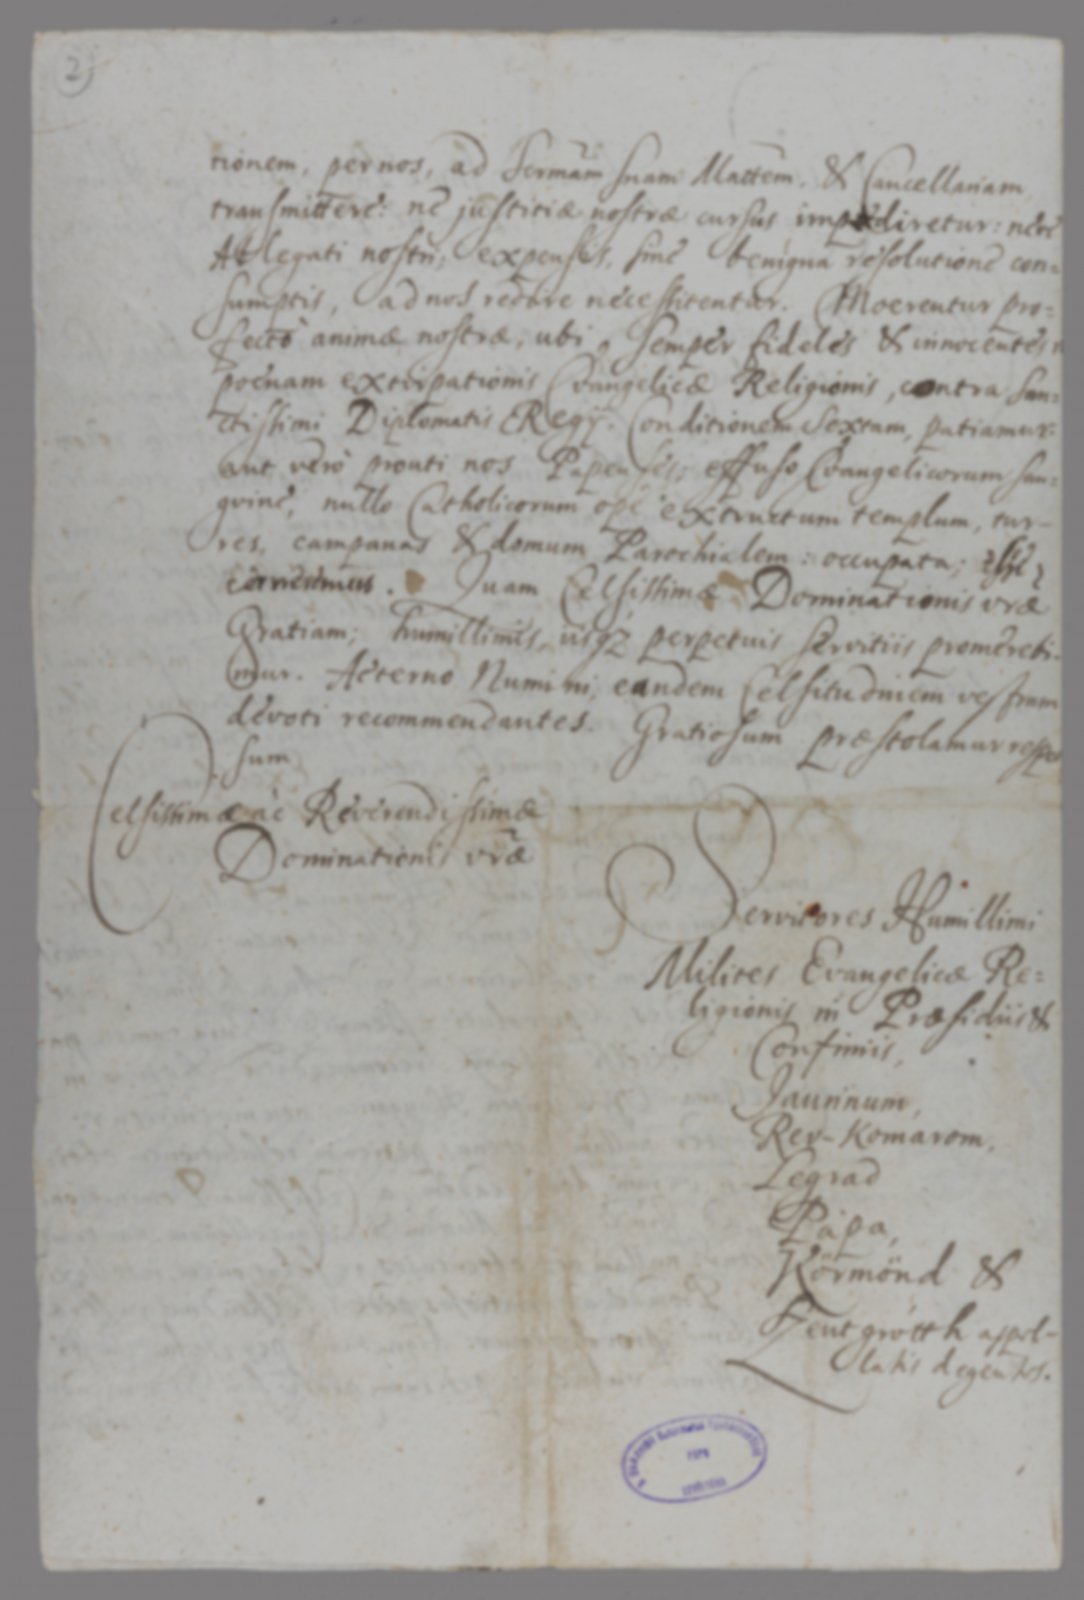 2
tionem, per nos, ad Sermãm suam Mattem, & Cancellariam
transmittere: ne justitiæ nostræ cursus impediretur: neve
Ablegati nostri, expensis, sine benigna resolutione con=
sumptis, ad nos redire necessitentur. Moerentur pro=
fecto animæ nostræ, ubi, semper fideles & innocentes
poenam extirpationis Evangelicæ Religionis, contra San=
ctissimi Diplomatis Regÿ Conditionem Sextam, patiamur:
aut vero prouti nos Papenses; effuso Evangelicorum san=
gvine, nullo Catholicorum ope extructum templum, tur-
res, campanas & domum Parochialem: occupata; esse
cerneremus. Quam Celsissimæ Dominationis vræ
Gratiam; humillimis, iisqz perpetuis servitiis promerebi-
mur. Aeterno Numini, eandem Celsitudinem vestram
devoti recommendantes. Gratiosum præstolamur respon
sum
Celsissimæ ac Reverendissimæ
Dominationis vræ
Servitores Humillimi
Milites Evangelicæ Re=
ligionis in Præsidiis &
Confiniis,
Jaurinum,
Rev-Komarom,
Legrad
Pápa,
Körmönd &
Zentgrótth appel-
latis degentes.